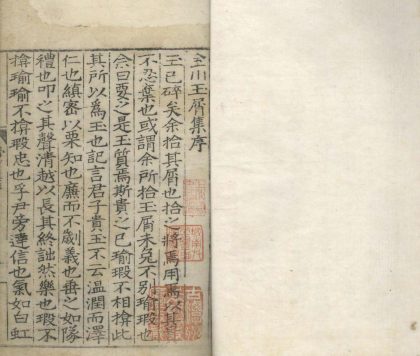 金川玉屑集序
玉已碎矣余拾其屑也拾之將焉用焉以其
不忍棄也或謂余所拾玉屑未免不别瑜瑕也
余曰要之是玉質焉斯貴之已瑜瑕不相揜此
其所以為玉也記言君子貴玉不云温潤而澤
仁也縝密以栗知也廉而不劌義也垂之如隊
禮也叩之其聲清越以長其終詘然樂也瑕不
揜瑜瑜不揜瑕忠也孚尹旁達信也氣如白虹